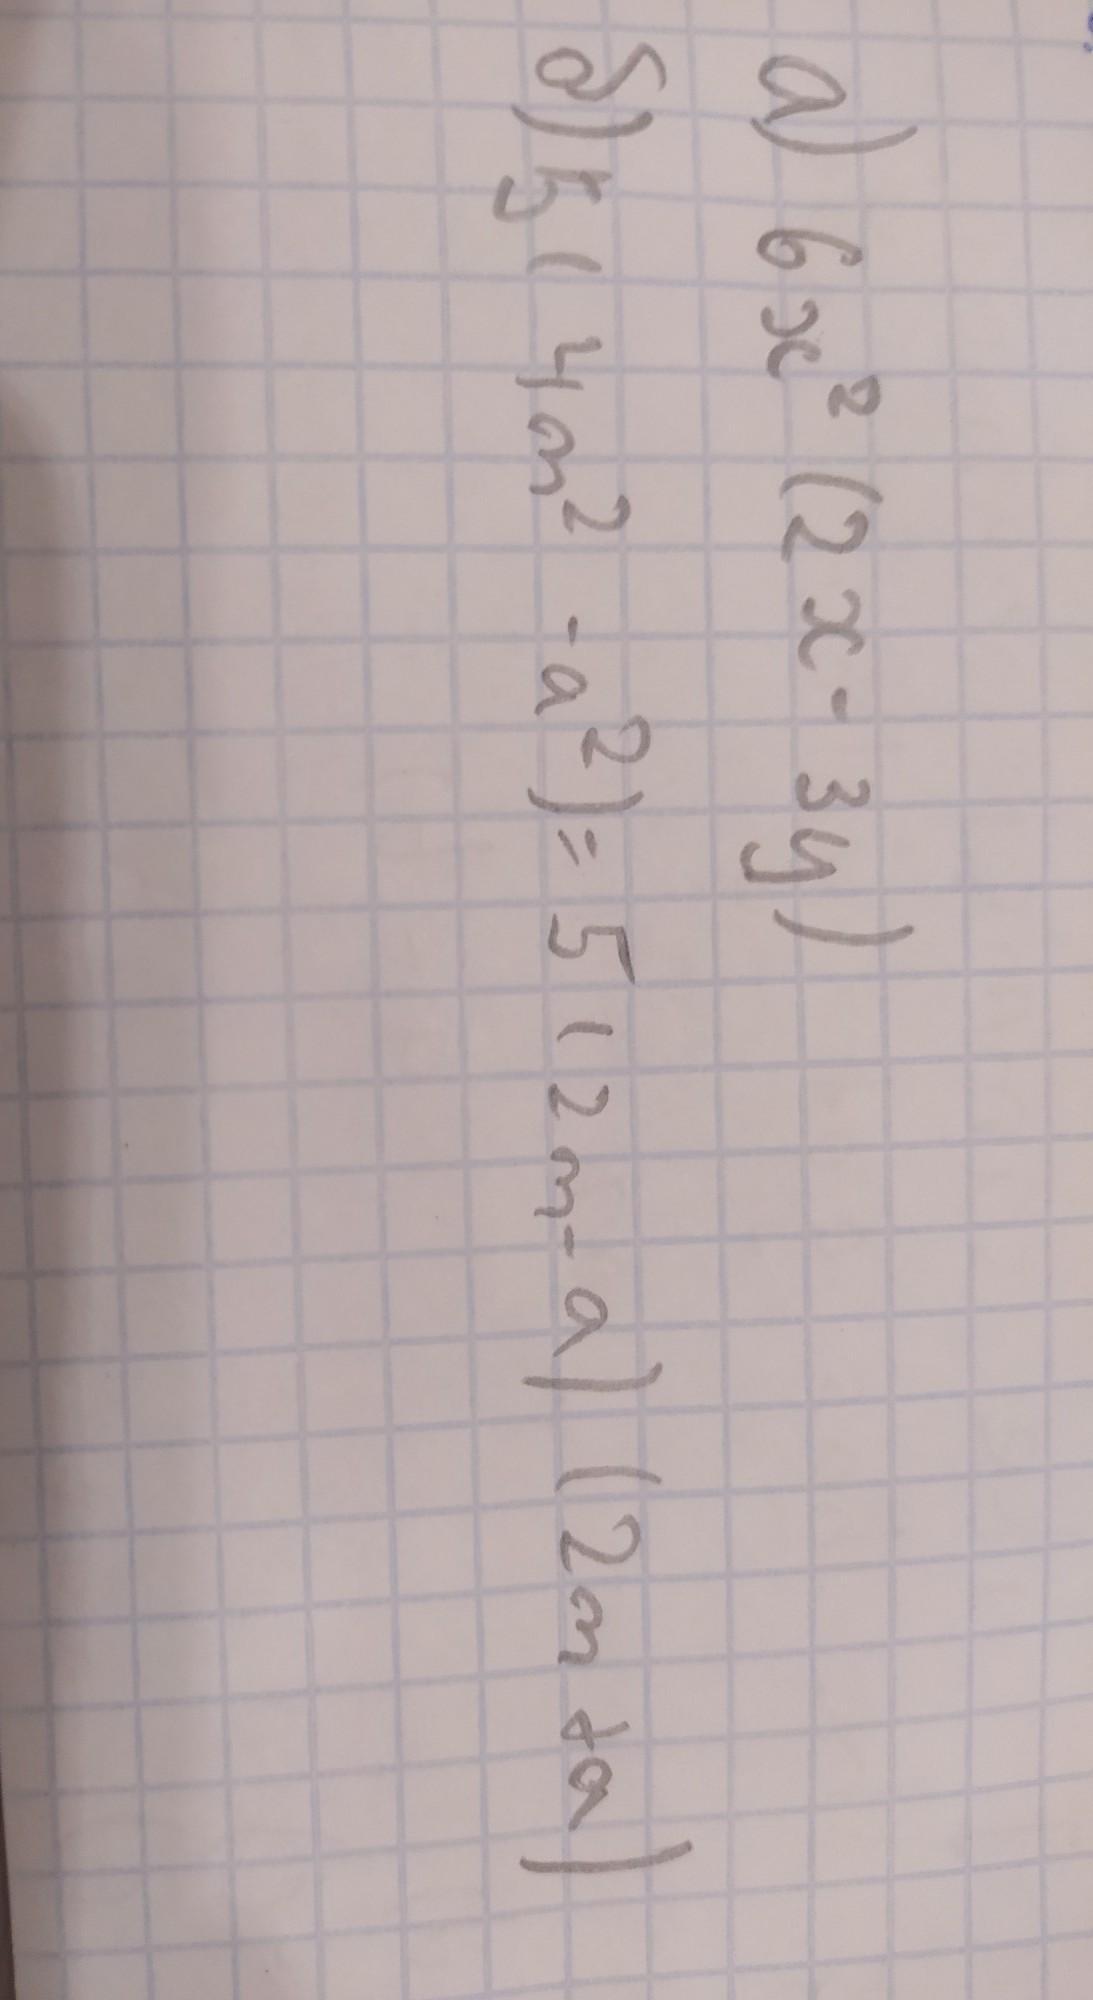 а) 6x² (2x - 3y)
б) 5 ( 4m² - a²) = 5 (2m - a) (2m + a)